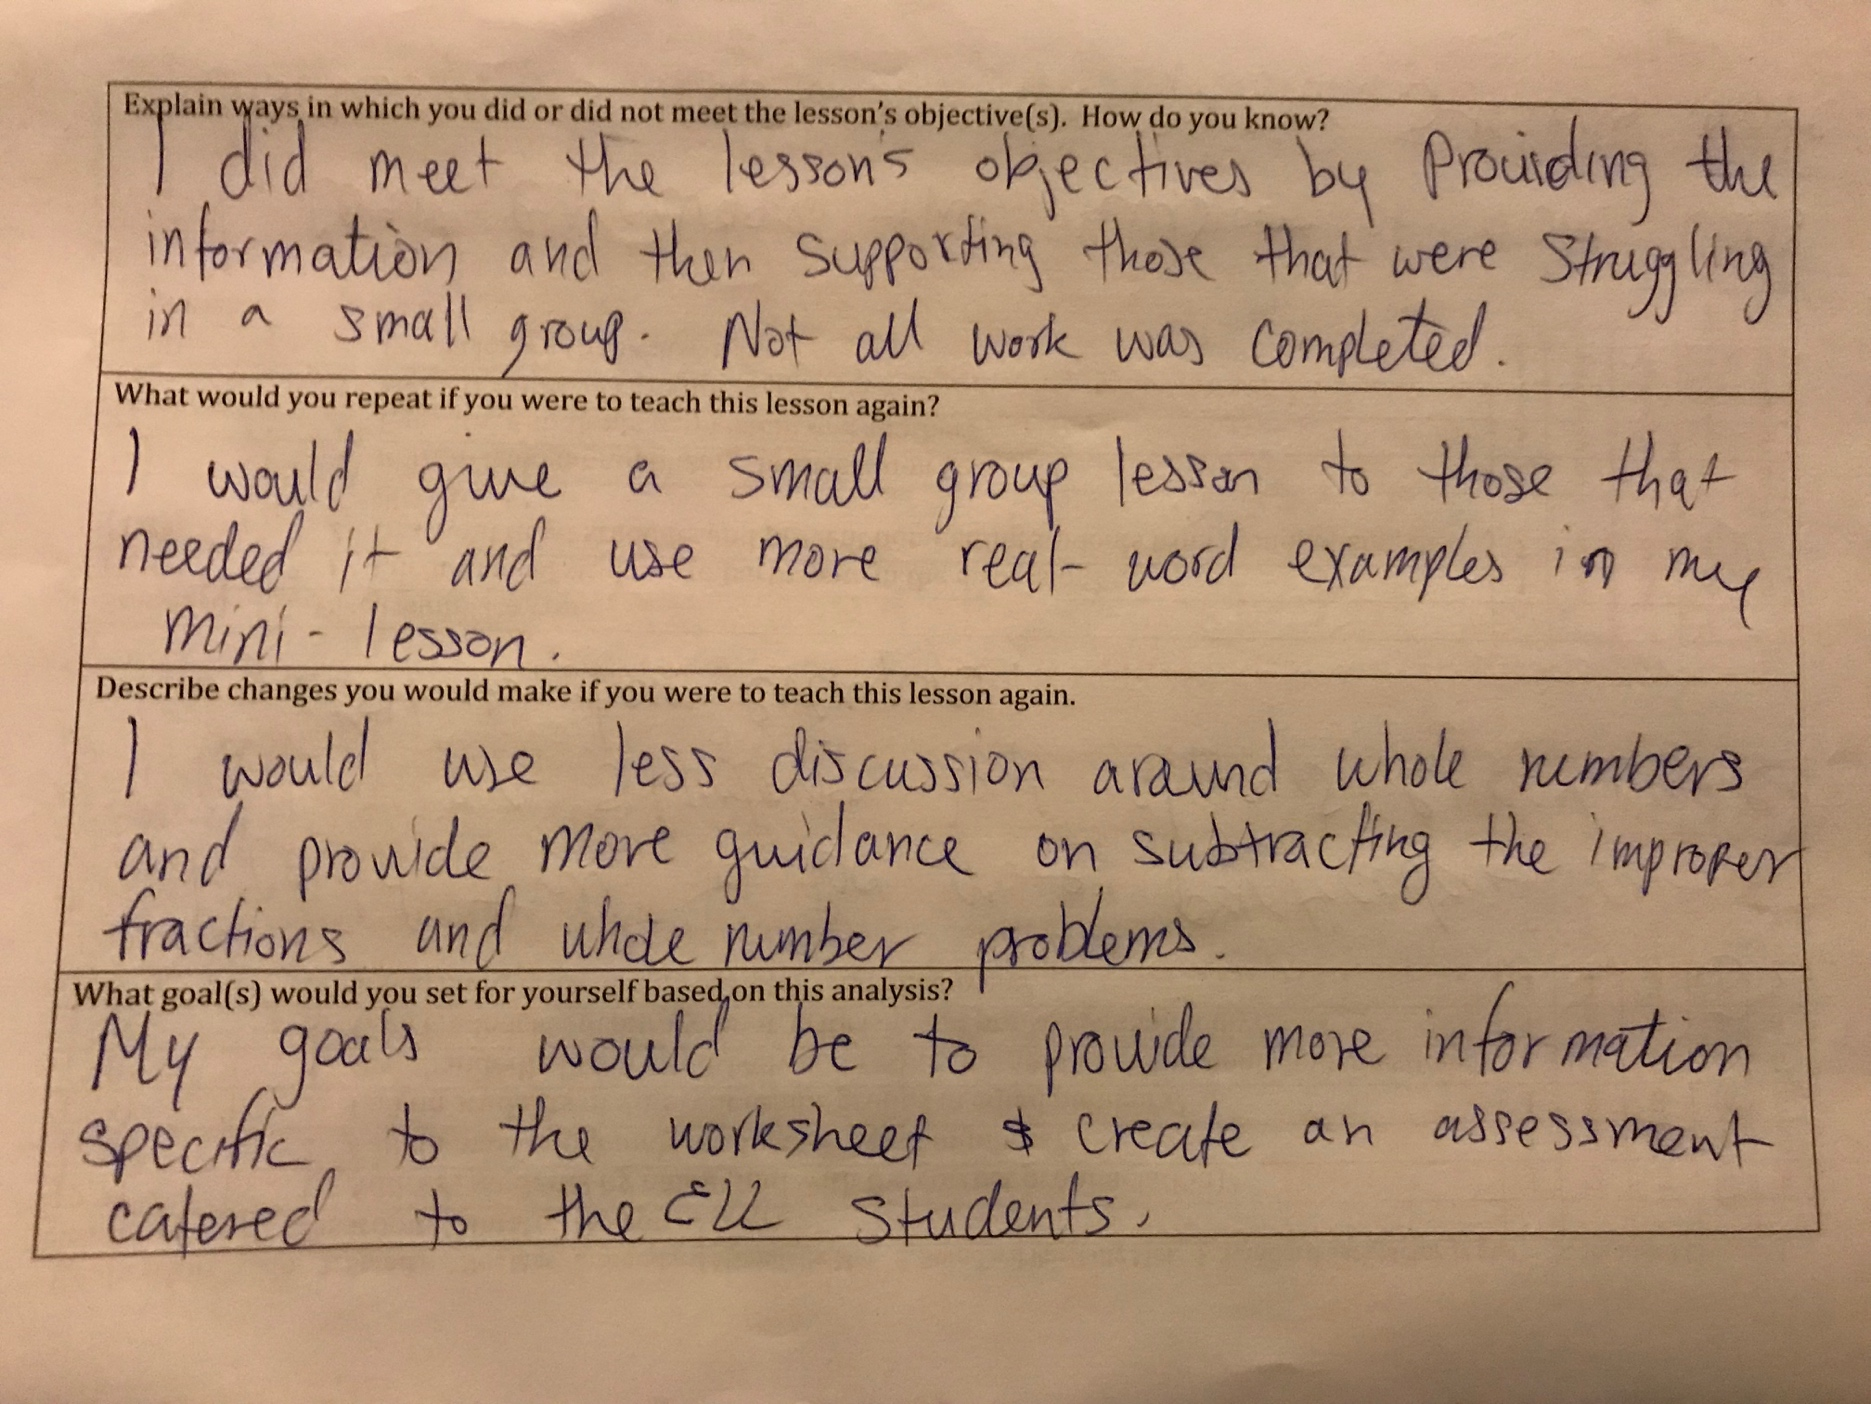 Explain ways in which you did or did not meet the lesson's objective(s). How do you know?
I did meet the lesson's objectives by Providing the
information and then supporting those that were struggling
in a small group. Not all work was completed.
What would you repeat if you were to teach this lesson again?
I would give a small group lesson to those that
needed it and use more real-word examples in my
mini-lesson.
Describe changes you would make if you were to teach this lesson again.
I would use less discussion around whole numbers
and provide more guidance on subtracting the improper
fractions and whole number problems.
What goal(s) would you set for yourself based on this analysis?
My goals would be to provide more information
specific to the worksheet & create an assessment
catered to the ELL students.